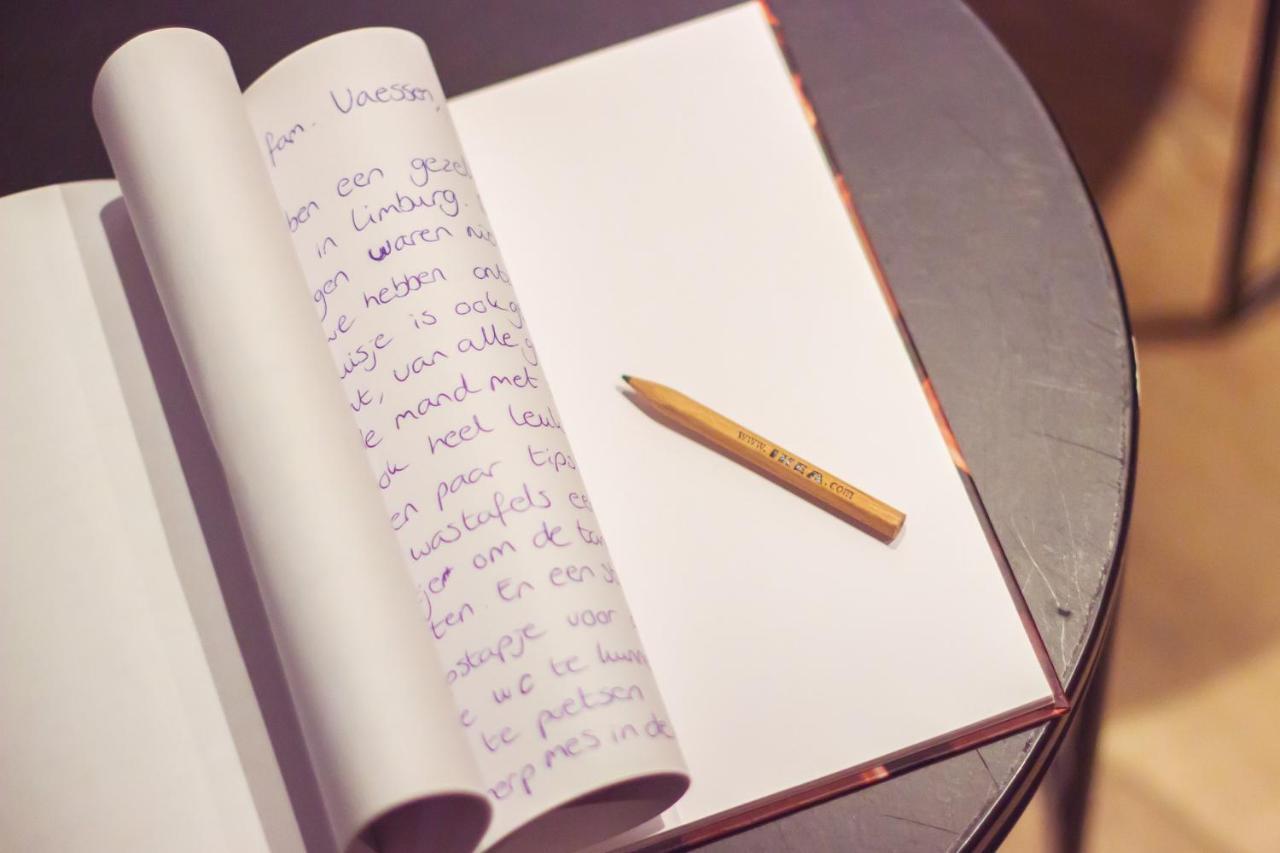 fam. Vaessen,
ben een gezel
in Limburg.
gen waren nie
we hebben ont
uisje is ook g
kt, van alle g
e mand met
ok heel leuk
en paar tips
wastafels ee
om de tan
ten. En een
pstapje voor
e wc te kunn
te poetsen
erp mes in de
www.IKEA.com